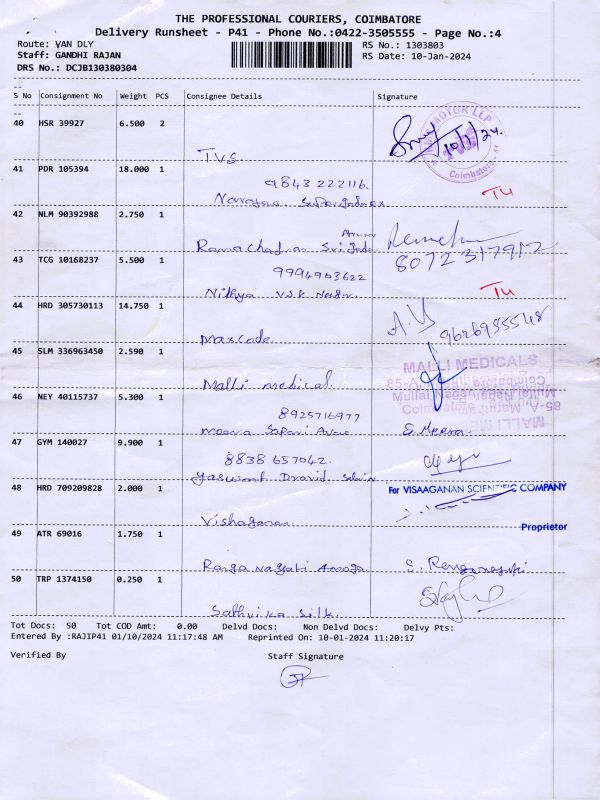 THE PROFESSIONAL COURIERS, COIMBATORE
Delivery Runsheet - P41 - Phone No.:0422-3505555 - Page No.:4
Route: VAN DLY RS No.: 1303803
Staff: GANDHI RAJAN RS Date: 10-Jan-2024
DRS No.: DCJB130380304
S No Consignment No Weight PCS Consignee Details Signature
40 HSR 39927 6.500 2
MOTOR LLP
10/1/24.
Coimbatore
TVS
41 PDR 105394 18.000 1
9843 222116.
TU
42 NLM 90392988 2.750 1
8072317912
43 TCG 10168237 5.500 1
9994903622
Nithya
TU
44 HRD 305730113 14.750 1
9626955548
Maxcode
45 SLM 336963450 2.590 1
MALLI MEDICALS
Malli medical
46 NEY 40115737 5.300 1
8925716977
Meena Safari Avenue S. Meena
47 GYM 140027 9.900 1
8838 657042.
Yaswant Dravid
48 HRD 709209828 2.000 1
For VISAAGANAN SCIENTIFIC COMPANY
Vishaganan
Proprietor
49 ATR 69016 1.750 1
Ranganayaki S. Renganayaki
50 TRP 1374150 0.250 1
Sathvika Silk
Tot Docs: 50 Tot COD Amt: 0.00 Delvd Docs: Non Delvd Docs: Delvy Pts:
Entered By :RAJIP41 01/10/2024 11:17:48 AM Reprinted On: 10-01-2024 11:20:17
Verified By Staff Signature